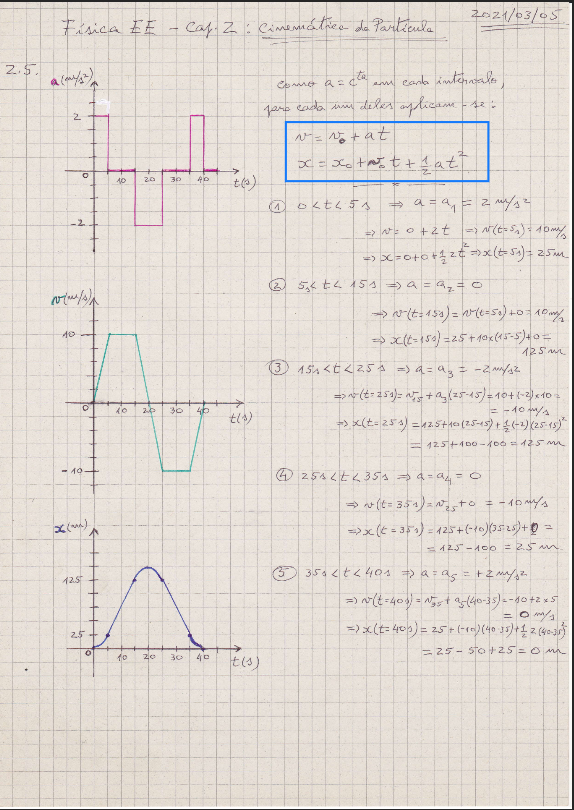 2021/03/05
Física EE - Cap. 2 : Cinemática da Partícula
2.5.
a(m/s²)
2
0
10 20 30 40
t(s)
-2
v(m/s)
10
0
10 20 30 40
t(s)
-10
x(m)
125
25
0
10 20 30 40
t(s)
como a = cᵗᵉ em cada intervalo,
para cada um deles aplicam-se:
v = v₀ + at
x = x₀ + v₀ t + ½ at²
① 0 < t < 5s ⇒ a = a₁ = 2 m/s²
⇒ v = 0 + 2t ⇒ v(t=5s) = 10 m/s
⇒ x = 0+0+½ 2t² ⇒ x(t=5s) = 25 m
② 5s < t < 15s ⇒ a = a₂ = 0
⇒ v(t=15s) = v(t=5s)+0 = 10 m/s
⇒ x(t=15s) = 25+10×(15-5)+0 =
125 m
③ 15s < t < 25s ⇒ a = a₃ = -2 m/s²
⇒ v(t=25s) = v₁₅ + a₃(25-15) = 10+(-2)×10 =
= -10 m/s
⇒ x(t=25s) = 125+10(25-15)+½(-2)(25-15)²
= 125+100-100 = 125 m
④ 25s < t < 35s ⇒ a = a₄ = 0
⇒ v(t=35s) = v₂₅ + 0 = -10 m/s
⇒ x(t=35s) = 125+(-10)(35-25)+0 =
= 125-100 = 25 m
⑤ 35s < t < 40s ⇒ a = a₅ = +2 m/s²
⇒ v(t=40s) = v₃₅ + a₅(40-35) = -10+2×5
= 0 m/s
⇒ x(t=40s) = 25+(-10)(40-35)+½ 2(40-35)²
= 25-50+25 = 0 m